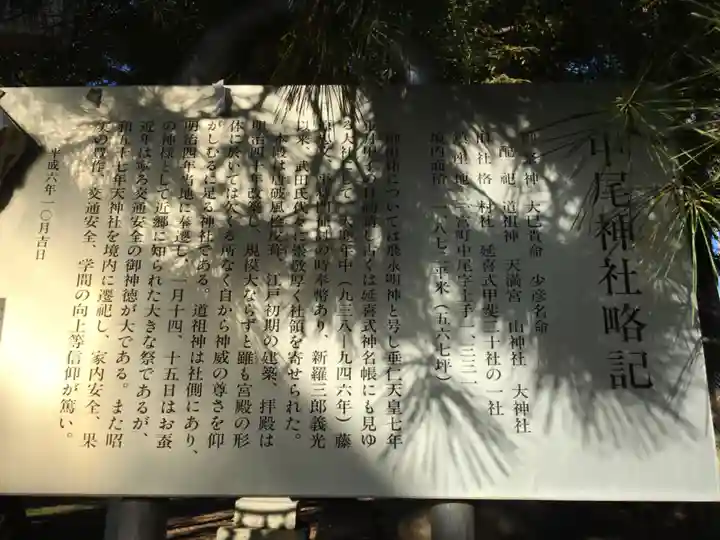 中尾神社略記
神 大巳貴命 少彦名命
配祀 道祖神 天満宮 山神社 大神社
社格 村社 延喜式甲斐二十社の一社
鎮座地 一宮町中尾字上手一、三三一
境内面積 一、八七二平米（五六七坪）
については 永明神と号し垂仁天皇七年
古くは延喜式神名帳にも見ゆ
る大社にして 年中（九三八〜九四六年）藤
の時奉幣あり、新羅三郎義光
以来、武田氏代々に崇敬厚く社領を寄せられた。
本殿は唐破 江戸初期の建築、拝殿は
明治四十 年改築し、規模大ならずと雖も宮殿の形
体に於いては欠くる所なく自から神威の尊さを仰
がしむるに足る神社である。道祖神は社側にあり、
明治四年当地に奉遷し、一月十四、十五日はお蚕
の神様として近郷に知られた大きな祭であるが、
近年は家 交通安全の御神徳が大である。また昭
和五十 年天神社を境内に遷祀し、家内安全、果
実の豊作、交通安全、学問の向上等信仰が篤い。
平成六年一〇月吉日